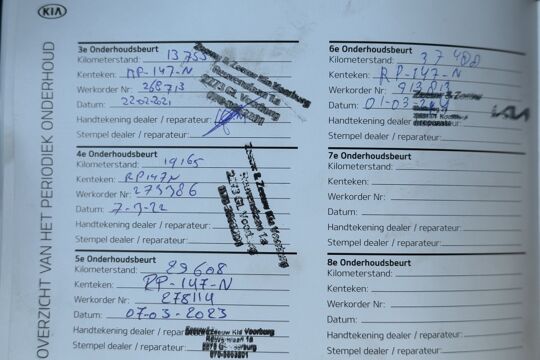 KIA
OVERZICHT VAN HET PERIODIEK ONDERHOUD
3e Onderhoudsbeurt
Kilometerstand: 13.755
Kenteken: RP-147-N
Werkorder Nr: 268713
Datum: 22-02-2021
Handtekening dealer / reparateur:
Stempel dealer / reparateur:
Zeeuw & Zeeuw Kia Voorburg
4e Onderhoudsbeurt
Kilometerstand: 19165
Kenteken: RP147N
Werkorder Nr: 273386
Datum: 7-3-22
Handtekening dealer / reparateur:
Stempel dealer / reparateur:
Zeeuw & Zeeuw Kia Voorburg
5e Onderhoudsbeurt
Kilometerstand: 29608
Kenteken: RP-147-N
Werkorder Nr: 278114
Datum: 07-03-2023
Handtekening dealer / reparateur:
Stempel dealer / reparateur:
Zeeuw Kia Voorburg
6e Onderhoudsbeurt
Kilometerstand: 37
Kenteken: RP-147-N
Werkorder Nr:
Datum: 01-03-
Handtekening dealer / reparateur:
Stempel dealer / reparateur:
KIA
7e Onderhoudsbeurt
Kilometerstand:
Kenteken:
Werkorder Nr:
Datum:
Handtekening dealer / reparateur:
Stempel dealer / reparateur:
8e Onderhoudsbeurt
Kilometerstand:
Kenteken:
Werkorder Nr:
Datum:
Handtekening dealer / reparateur:
Stempel dealer / reparateur: